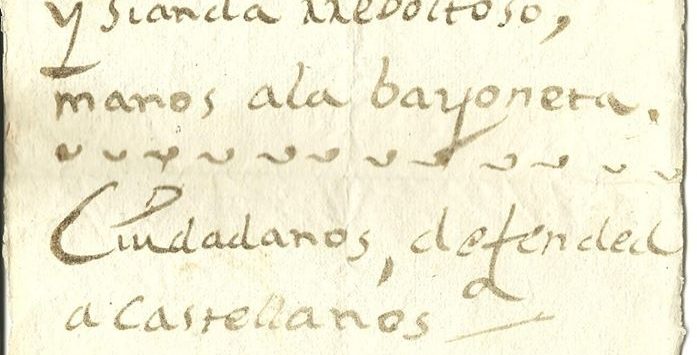 y sianda Reboltoso,
manos ala bayoneta.
Ciudadanos, defended
a Castellanos